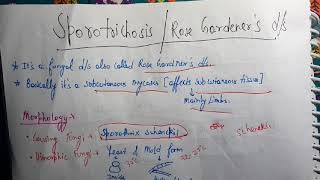 Sporotrichosis / Rose Gardener's d/s
* It's a fungal d/s also called Rose Gardner's d/s.
* Basically it's a subcutaneous mycosis [affects subcutaneous tissue]
mainly limbs.
Morphology →
• Causing fungi → Sporothrix schenckii
schenckii
• Dimorphic Fungi → Yeast & Mold form